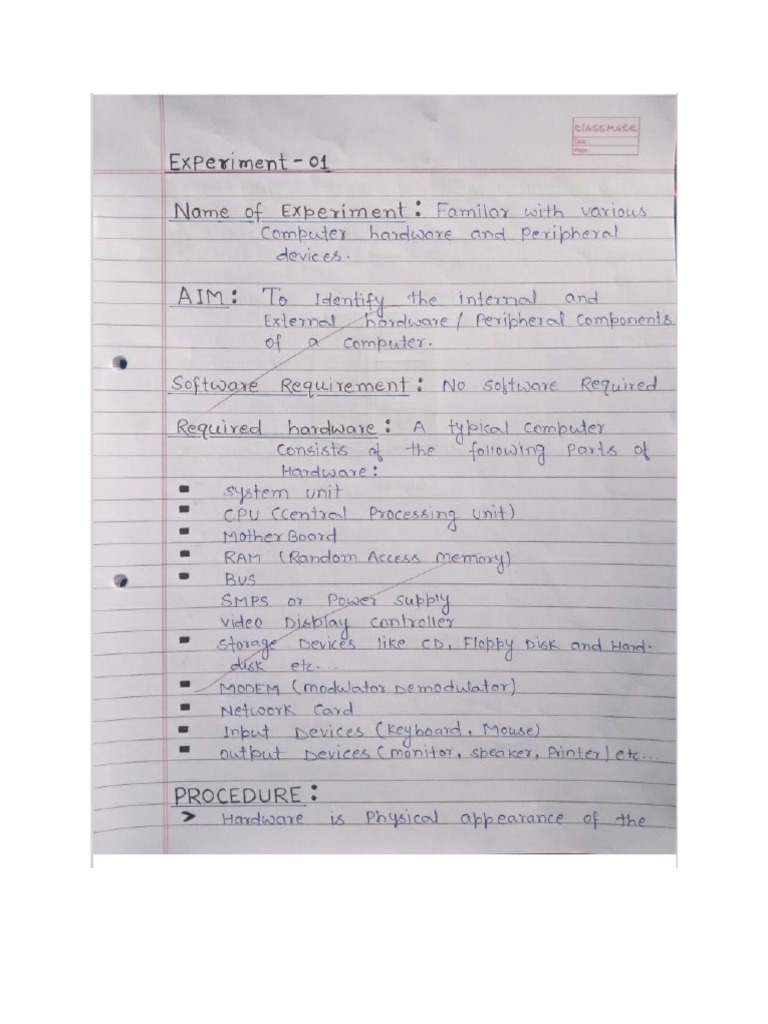 classmate
Date :
Page :
Experiment - 01
Name of Experiment : Familar with various
Computer hardware and Peripheral
devices.
AIM : To Identify the internal and
External hardware / Peripheral Components
of a computer.
Software Requirement : No software Required
Required hardware : A typical computer
Consists of the following Parts of
Hardware :
▪ system unit
▪ CPU (Central Processing Unit)
▪ Mother Board
▪ RAM (Random Access memory)
▪ Bus
SMPS or Power supply
video Display controller
▪ Storage Devices like CD, Floppy Disk and Hard-
disk etc....
▪ MODEM (modulator Demodulator)
▪ Network Card
▪ Input Devices (Keyboard, Mouse)
▪ output Devices (monitor, speaker, Printer) etc...
PROCEDURE :
➤ Hardware is Physical appearance of the